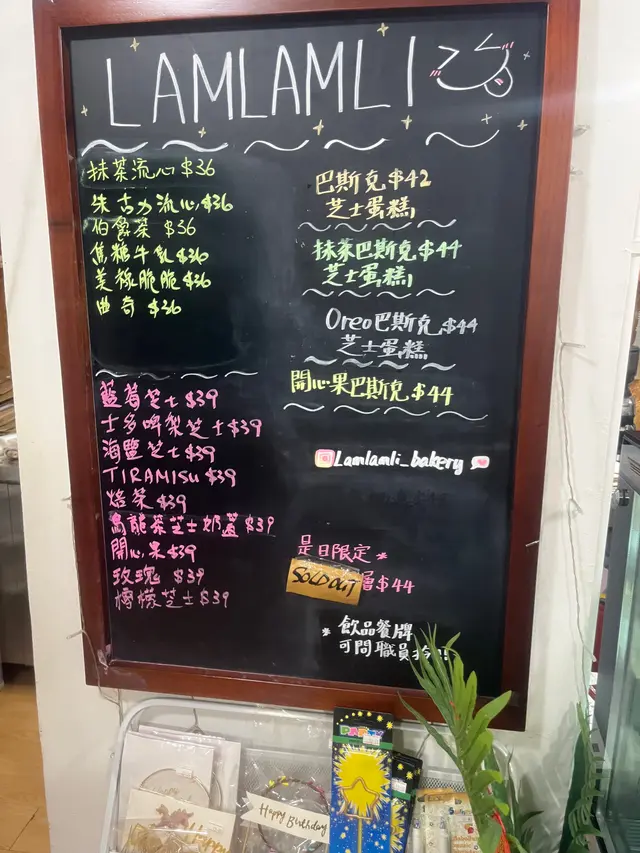 LAMLAMLI
抹茶流心 $36
朱古力流心 $36
伯爵茶 $36
焦糖牛乳 $36
美祿脆脆 $36
曲奇 $36
藍莓芝士 $39
士多啤梨芝士 $39
海鹽芝士 $39
TIRAMISU $39
焙茶 $39
烏龍茶芝士奶蓋 $39
開心果 $39
玫瑰 $39
檸檬芝士 $39
巴斯克 $42
芝士蛋糕
抹茶巴斯克 $44
芝士蛋糕
Oreo巴斯克 $44
芝士蛋糕
開心果巴斯克 $44
Lamlamli_bakery
是日限定
SOLD OUT
層 $44
* 飲品餐牌
可問職員
PARTY
Happy Birthday